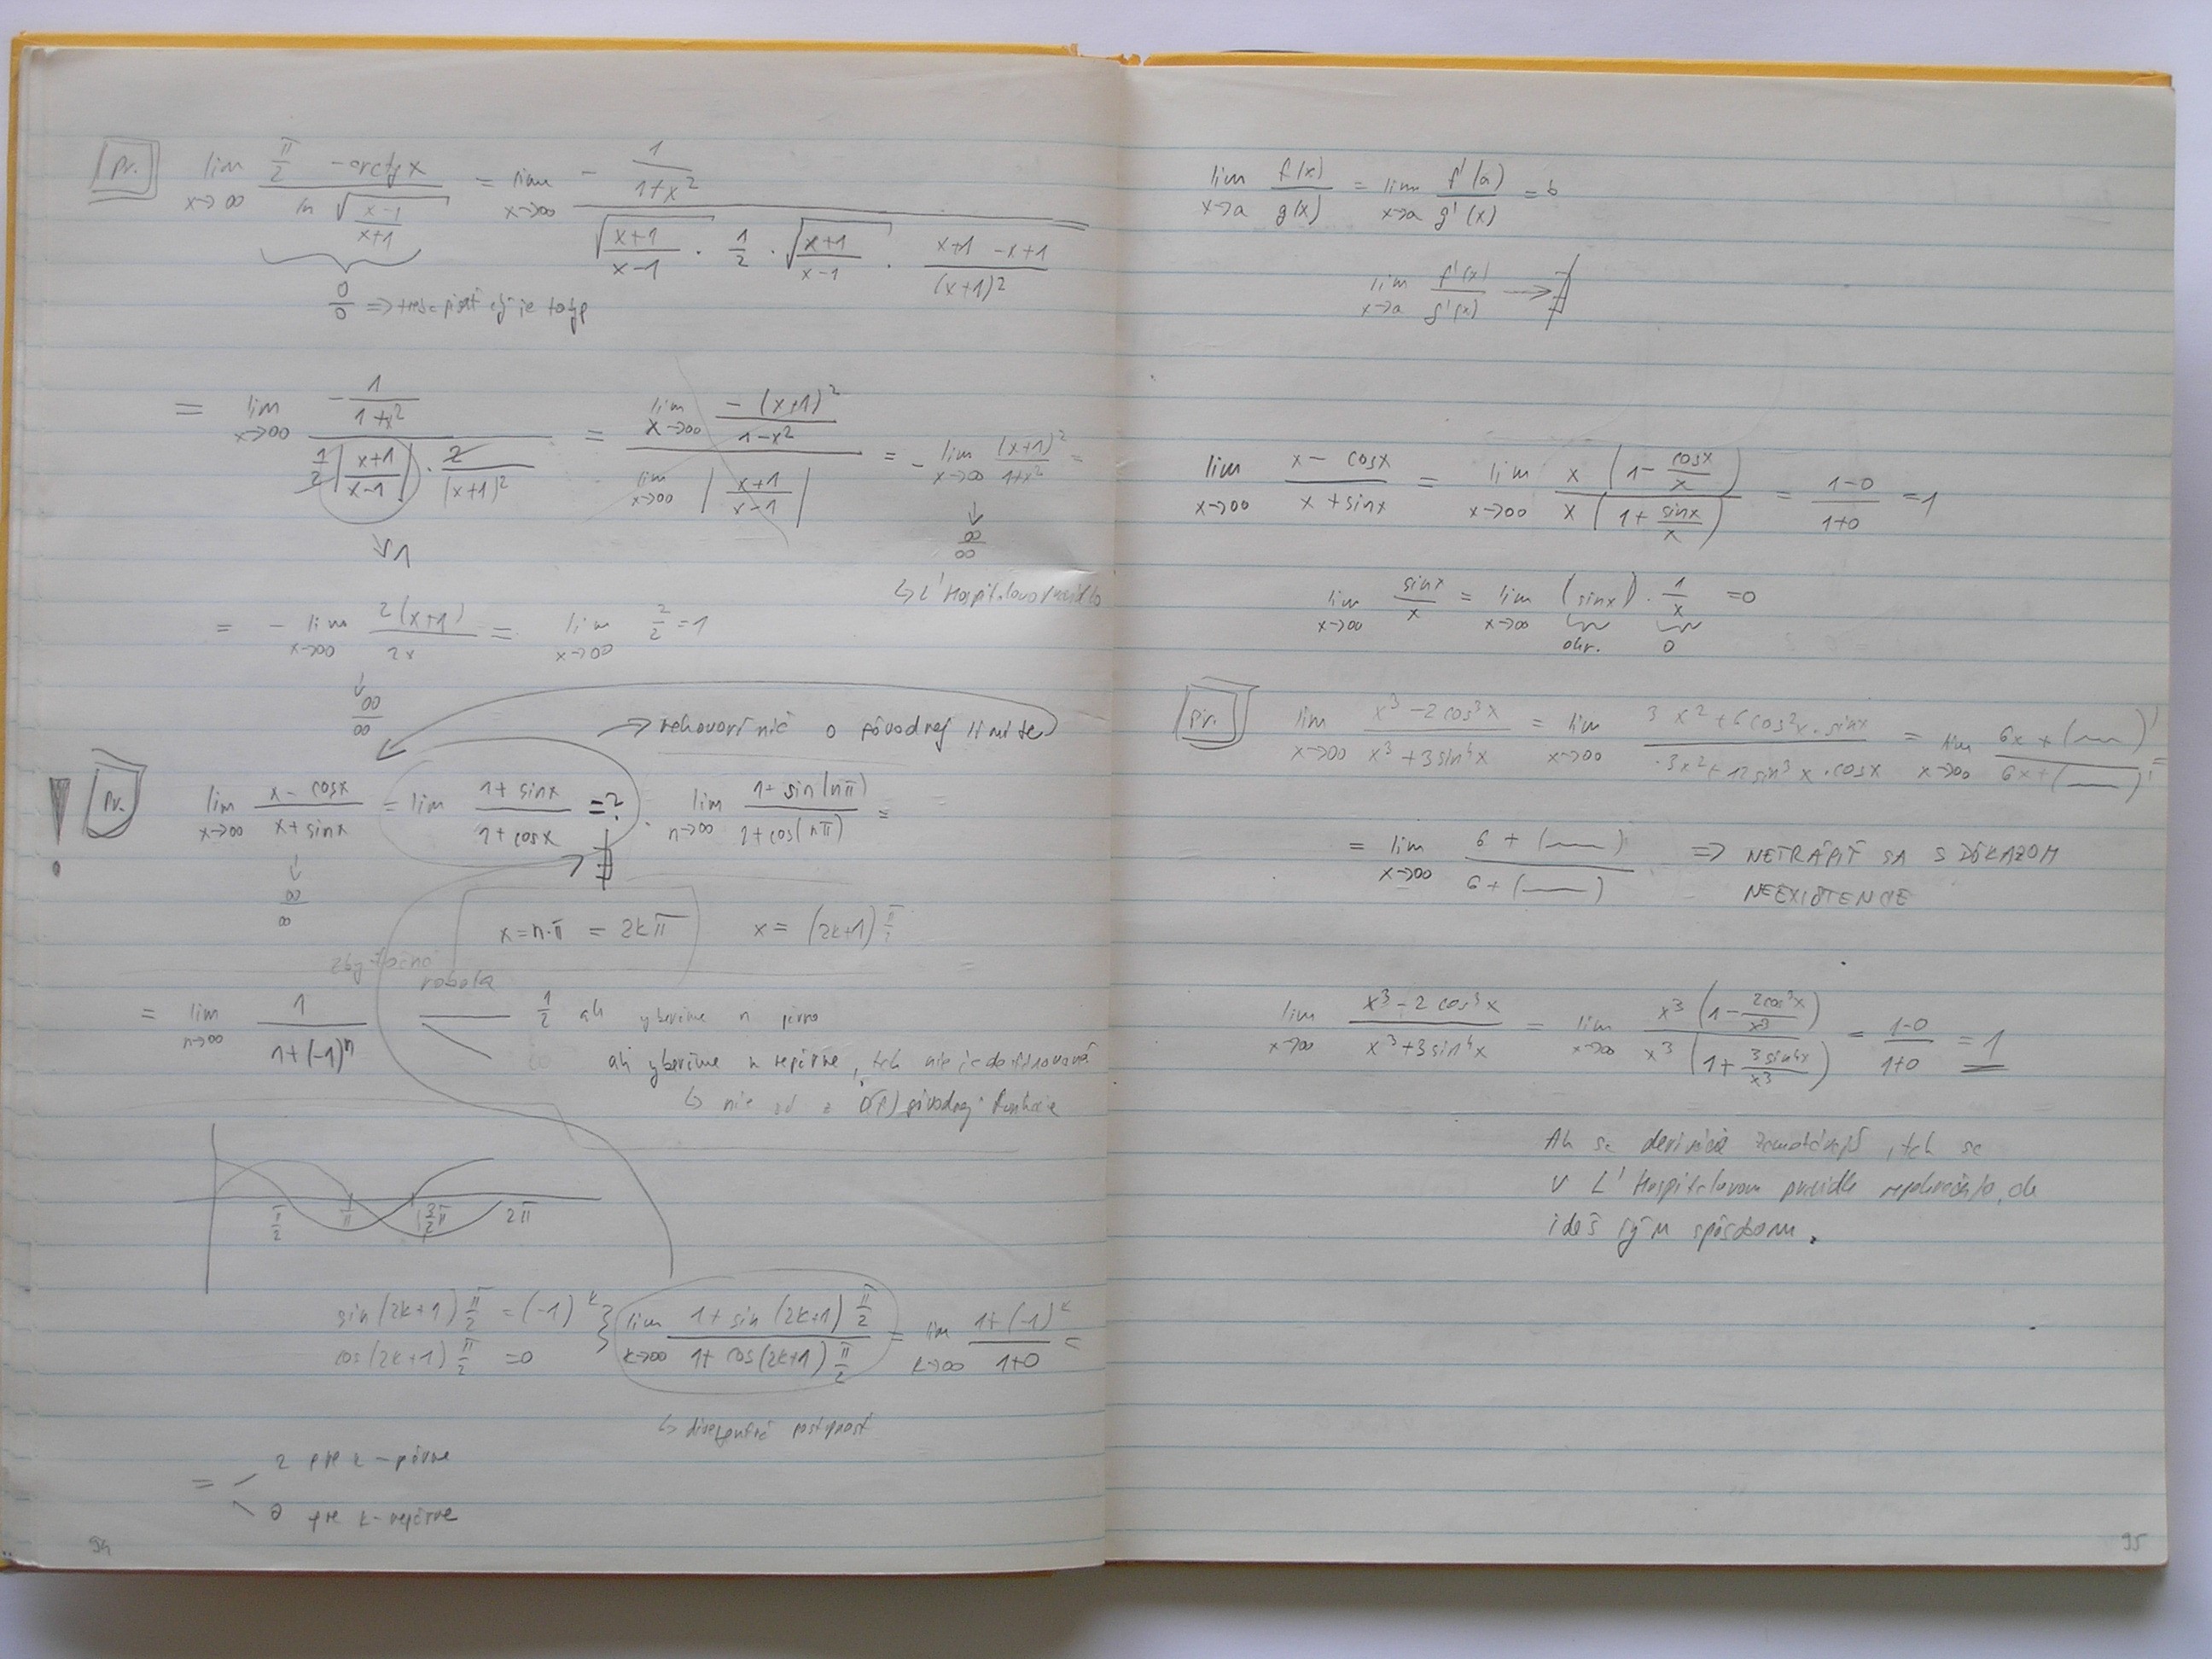 Pr. lim x→∞ (π/2 - arctg x)/(ln √((x-1)/(x+1))) = lim x→∞ (- 1/(1+x²))/(√((x+1)/(x-1)) · 1/2 · √((x+1)/(x-1)) · (x+1 -x+1)/(x+1)²)
0/0 => treba písať aký je to typ
= lim x→∞ (- 1/(1+x²))/(1/2 |(x+1)/(x-1)| · 2/(x+1)²) = (lim x→∞ (-(x+1)²)/(1-x²))/(lim x→∞ |(x+1)/(x-1)|) = - lim x→∞ (x+1)²/(1+x²) =
↓ 1
↓ ∞/∞
↳ L'Hospitalovo pravidlo
= - lim x→∞ 2(x+1)/2x = lim x→∞ 2/2 = 1
↓ ∞/∞
→ nehovorí nič o pôvodnej limite
! Pr. lim x→∞ (x - cosx)/(x + sinx) = lim (1+ sinx)/(1+ cosx) = ? lim n→∞ (1+ sin(nπ))/(1+cos(nπ)) =
↓ ∞/∞
→ ∄
x = n·π = 2kπ x = (2k+1) π/2
zbytočná robota
= lim n→∞ 1/(1+(-1)ⁿ) 1/2 ak vyberíme n párne
ak vyberíme n nepárne, tak nie je definovaná
↳ nie z D(f) pôvodnej funkcie
π/2 π 3/2 π 2π
sin(2k+1) π/2 = (-1)^k } lim k→∞ (1+ sin(2k+1) π/2)/(1+ cos(2k+1) π/2) = lim k→∞ (1+(-1)^k)/(1+0) =
cos(2k+1) π/2 = 0
↳ divergentná postupnosť
= 2 pre k - párne
0 pre k - nepárne
94
lim x→a f(x)/g(x) = lim x→a f'(a)/g'(x) = b
lim x→a f'(x)/g'(x) → ∄
lim x→∞ (x - cosx)/(x + sinx) = lim x→∞ x(1 - cosx/x)/x(1 + sinx/x) = (1-0)/(1+0) = 1
lim x→∞ sinx/x = lim x→∞ (sinx) · 1/x = 0
ohr. 0
Pr. lim x→∞ (x³ - 2cos³x)/(x³ + 3sin⁴x) = lim x→∞ (3x² + 6cos²x · sinx)/(3x² + 12sin³x · cosx) = lim x→∞ (6x + (—)')/(6x + (—)') =
= lim x→∞ (6 + (—)')/(6 + (—)) => NETRÁPIŤ SA S DÔKAZOM
NEEXISTENCIE
lim x→∞ (x³ - 2cos³x)/(x³ + 3sin⁴x) = lim x→∞ x³(1 - 2cos³x/x³)/x³(1 + 3sin⁴x/x³) = (1-0)/(1+0) = 1
Ak sa derivácie zamotávajú, tak sa
v L'Hospitalovom pravidle nepokračuje, ale
ideš iným spôsobom.
95